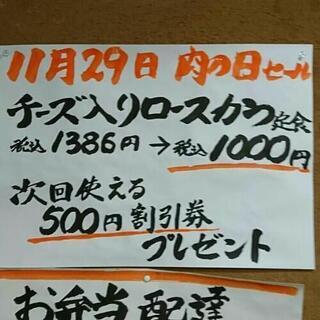 11月29日 肉の日セール
チーズ入りロースカツ定食
税込1386円→税込1000円
次回使える
500円割引券
プレゼント
お弁当配達